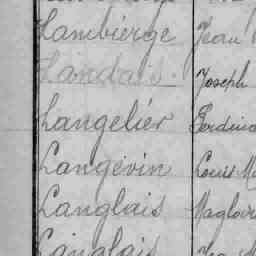 Lambierge Jean
Landais. Joseph
Langelier
Langevin Louis
Langlais
Langlais